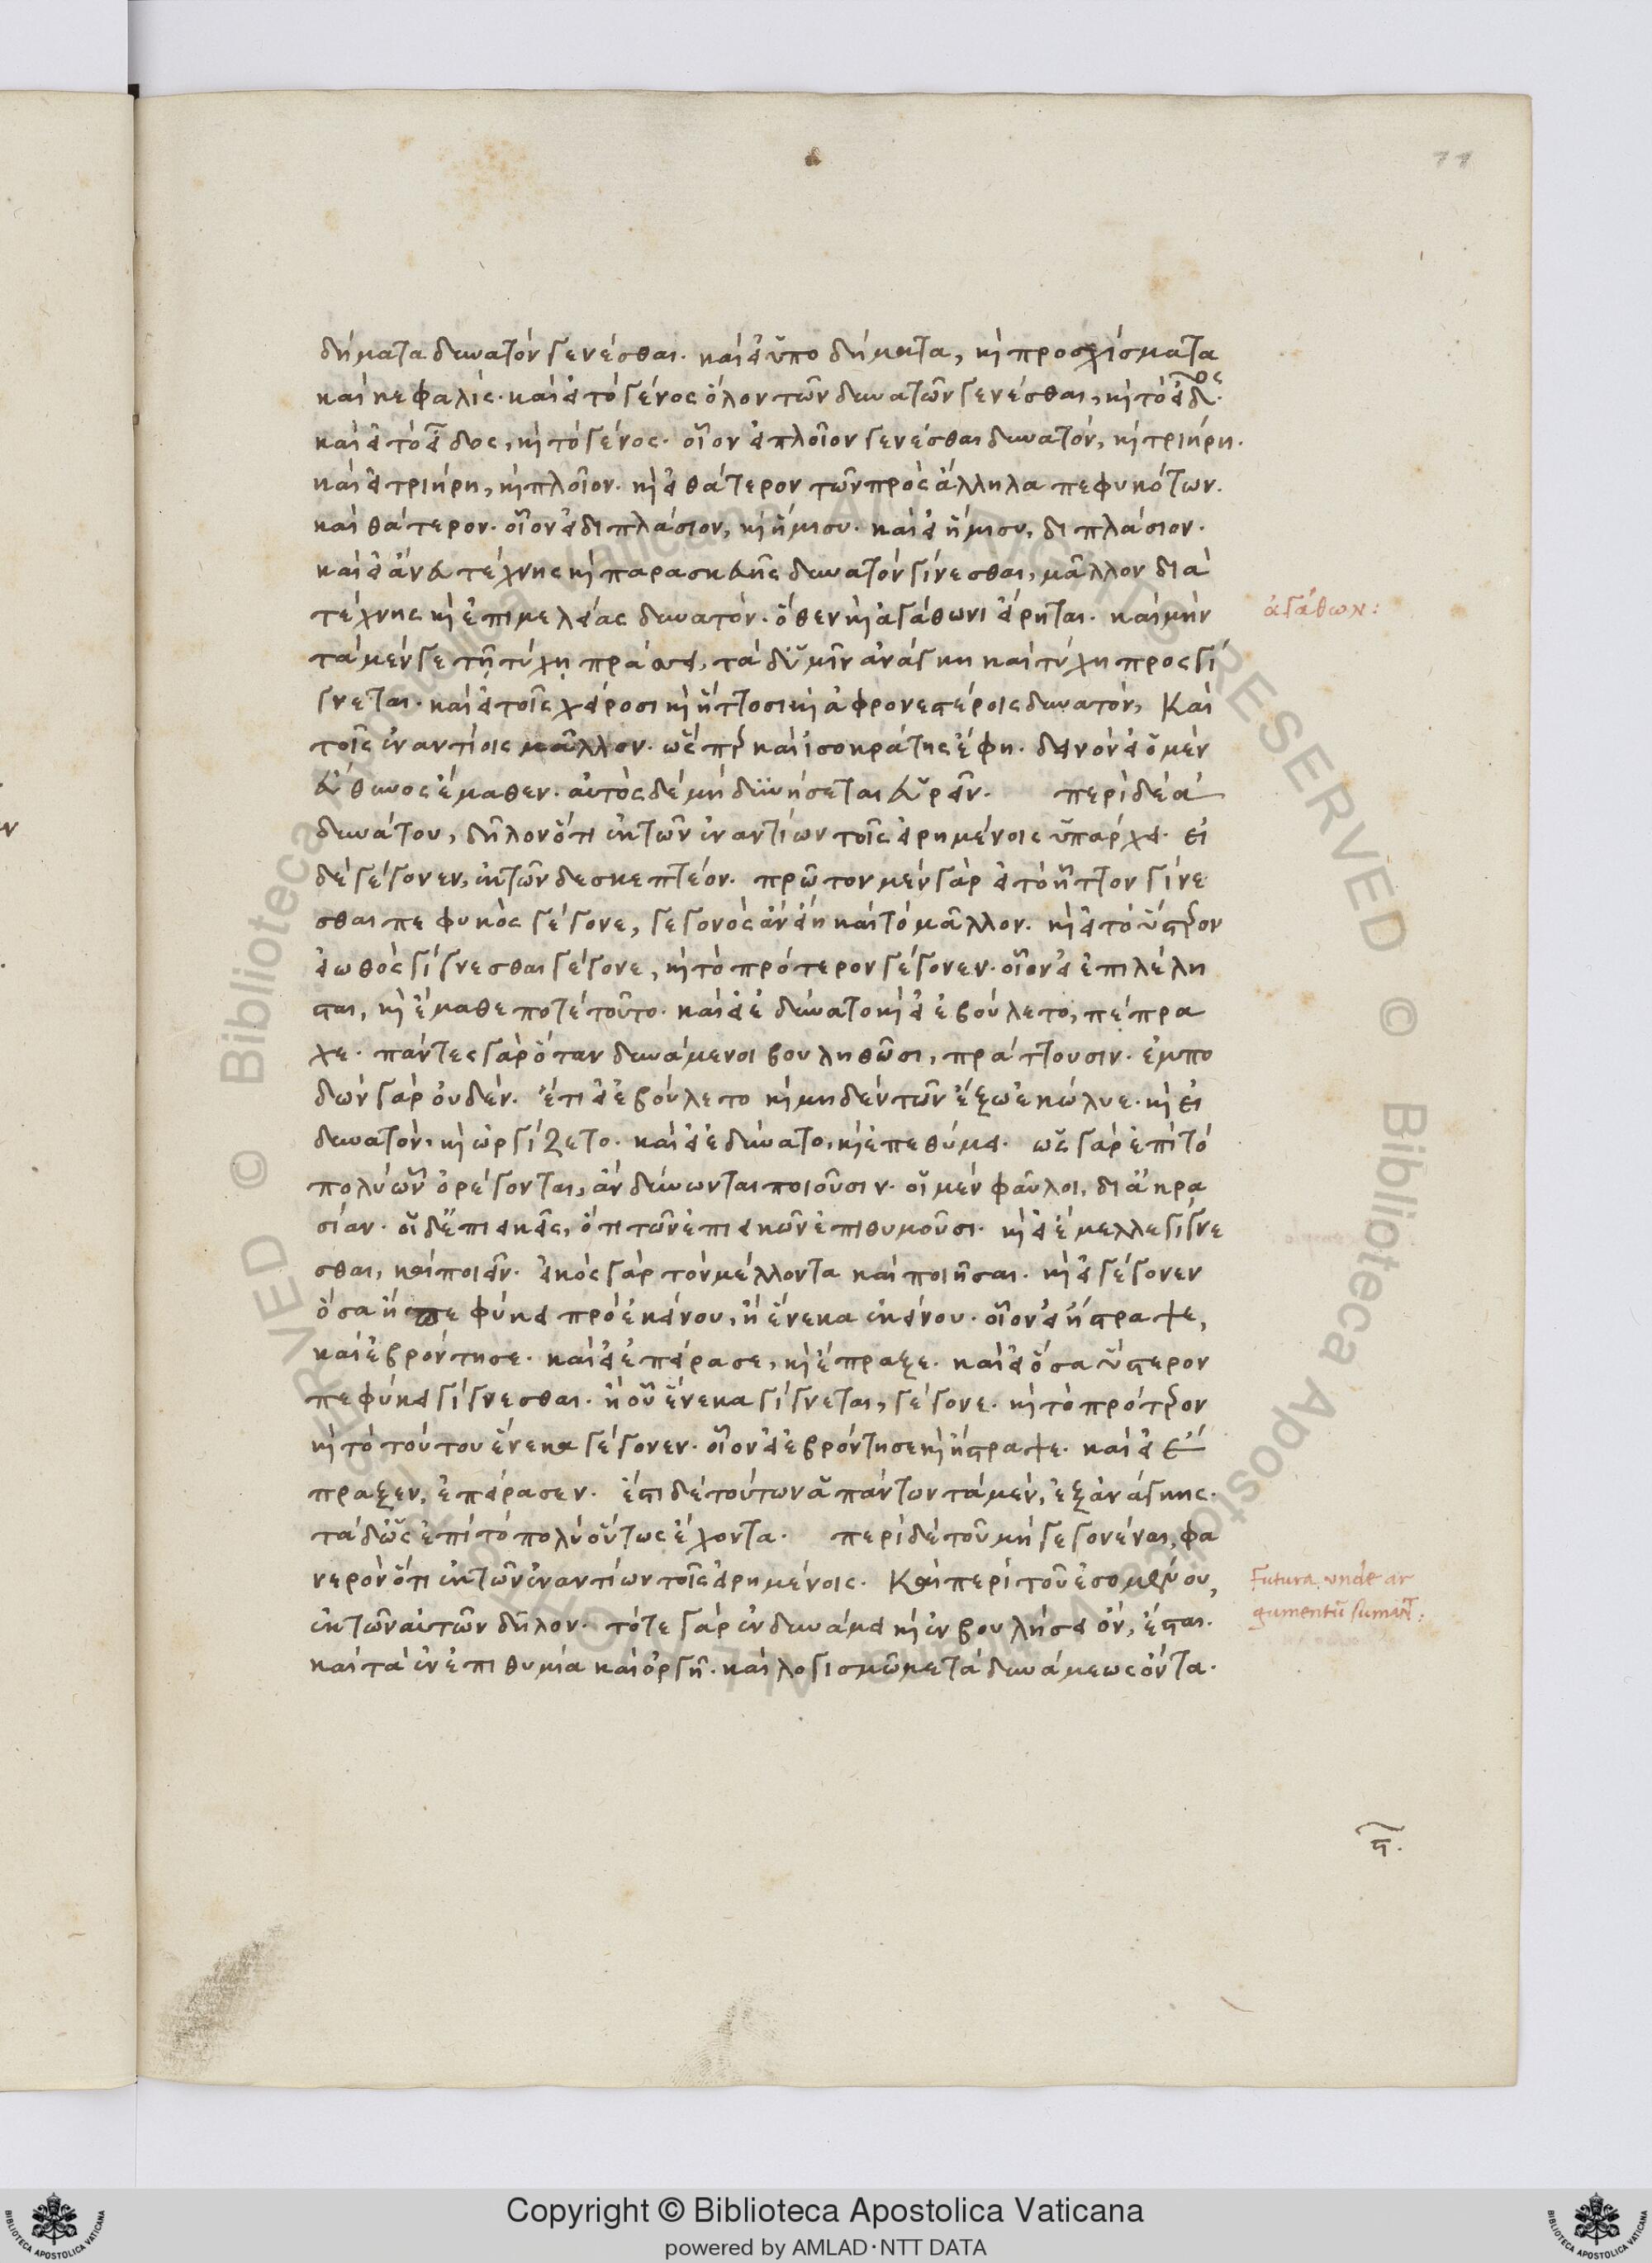 71
δήματα δυνατὸν γενέσθαι. καὶ εἰ ὑποδήματα, καὶ προσχίσματα
καὶ κεφαλίς. καὶ εἰ τὸ γένος ὅλον τῶν δυνατῶν γενέσθαι, καὶ τὸ εἶδος.
καὶ εἰ τὸ εἶδος, καὶ τὸ γένος. οἷον εἰ πλοῖον γενέσθαι δυνατόν, καὶ τριήρη.
καὶ εἰ τριήρη, καὶ πλοῖον. καὶ εἰ θάτερον τῶν πρὸς ἄλληλα πεφυκότων.
καὶ θάτερον. οἷον εἰ διπλάσιον, καὶ ἥμισυ. καὶ εἰ ἥμισυ, διπλάσιον.
καὶ εἰ ἄνευ τέχνης καὶ παρασκευῆς δυνατὸν γίνεσθαι, μᾶλλον διὰ
τέχνης καὶ ἐπιμελείας δυνατόν. ὅθεν καὶ ἀγάθωνι εἴρηται. καὶ μὴν
τὰ μέν γε τῇ τύχῃ πράσσει, τὰ δ' ἡμῖν ἀνάγκη καὶ τύχη προσγί
γνεται. καὶ εἰ τοῖς χείροσι καὶ ἥττοσι καὶ ἀφρονεστέροις δυνατόν, Καὶ
τοῖς ἐναντίοις μᾶλλον. ὥσπερ καὶ ἰσοκράτης ἔφη. δεινὸν εἰ ὁ μὲν
εὔθυνος ἔμαθεν. αὐτὸς δὲ μὴ δυνήσεται εὑρεῖν. περὶ δὲ ἀ
δυνάτου, δῆλον ὅτι ἐκ τῶν ἐναντίων τοῖς εἰρημένοις ὑπάρχει. εἰ
δὲ γέγονεν, ἐκ τῶνδε σκεπτέον. πρῶτον μὲν γὰρ εἰ τὸ ἧττον γίνε
σθαι πεφυκὸς γέγονε, γεγονὸς ἂν εἴη καὶ τὸ μᾶλλον. καὶ εἰ τὸ ὕστερον
εἰωθὸς γίγνεσθαι γέγονε, καὶ τὸ πρότερον γέγονεν. οἷον εἰ ἐπιλέλη
σται, καὶ ἔμαθε ποτὲ τοῦτο. καὶ εἰ ἐδύνατο καὶ εἰ ἐβούλετο, πέπρα
χε. πάντες γὰρ ὅταν δυνάμενοι βουληθῶσι, πράττουσιν. ἐμπο
δὼν γὰρ οὐδέν. ἔτι εἰ ἐβούλετο καὶ μηδὲν τῶν ἔξω ἐκώλυε. καὶ εἰ
δυνατόν, καὶ ὠργίζετο. καὶ εἰ ἐδύνατο, καὶ ἐπεθύμει. ὡς γὰρ ἐπὶ τὸ
πολὺ ὧν ὀρέγονται, ἂν δύνωνται ποιοῦσιν. οἱ μὲν φαῦλοι, δι' ἀκρα
σίαν. οἱ δ' ἐπιεικεῖς, ὅτι τῶν ἐπιεικῶν ἐπιθυμοῦσι. καὶ εἰ ἔμελλε γίγνε
σθαι, καὶ ποιεῖν. εἰκὸς γὰρ τὸν μέλλοντα καὶ ποιῆσαι. καὶ εἰ γέγονεν
ὅσα ἢ πεφύκει πρὸ ἐκείνου, ἢ ἕνεκα ἐκείνου. οἷον εἰ ἤστραψε,
καὶ ἐβρόντησε. καὶ εἰ ἐπείρασε, καὶ ἔπραξε. καὶ εἰ ὅσα ὕστερον
πεφύκει γίγνεσθαι. ἢ οὗ ἕνεκα γίγνεται, γέγονε. καὶ τὸ πρότερον
καὶ τὸ τούτου ἕνεκα γέγονεν. οἷον εἰ ἐβρόντησε καὶ ἤστραψε. καὶ εἰ ἔ
πραξεν, ἐπείρασεν. ἔστι δὲ τούτων ἁπάντων τὰ μὲν, ἐξ ἀνάγκης.
τὰ δ' ὡς ἐπὶ τὸ πολὺ οὕτως ἔχοντα. περὶ δὲ τοῦ μὴ γεγονέναι, φα
νερὸν ὅτι ἐκ τῶν ἐναντίων τοῖς εἰρημένοις. Καὶ περὶ τοῦ ἐσομένου,
ἐκ τῶν αὐτῶν δῆλον. τό τε γὰρ ἐν δυνάμει καὶ ἐν βουλήσει ὂν, ἔσται.
καὶ τὰ ἐν ἐπιθυμία καὶ ὀργῇ. καὶ λογισμῶ μετὰ δυνάμεως ὄντα.
ἀγάθων:
Futura unde ar
gumentū sumūt:
ϛ.
Copyright © Biblioteca Apostolica Vaticana
powered by AMLAD·NTT DATA